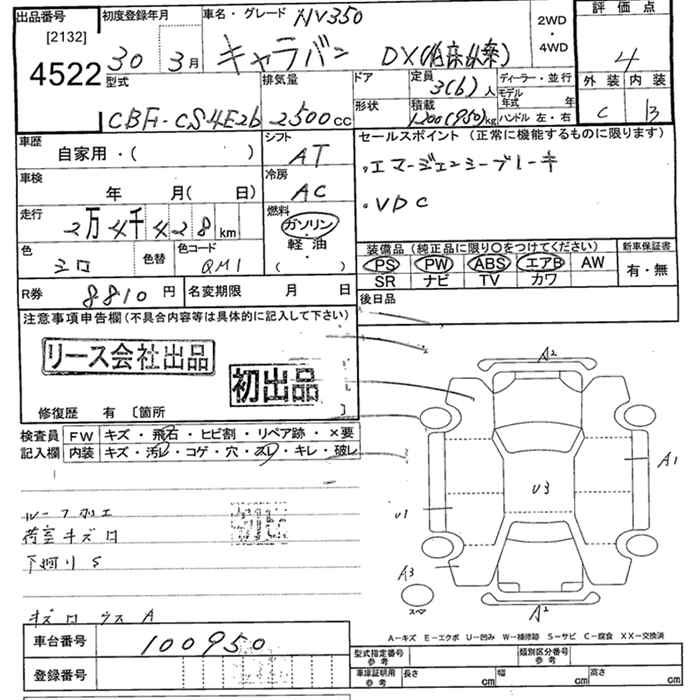 出品番号
[2132]
4522
初度登録年月
30年3月
車名・グレード NV350
キャラバン DX
2WD
・
4WD
評価点
4
外装 内装
C B
型式
CBF-CS4E26
排気量
2500cc
ドア
形状
定員
3(6)人
積載
1200(950)kg
ディーラー・並行
モデル年式 年
ハンドル 左・右
車歴
自家用・( )
シフト
AT
車検
年 月( 日)
冷房
AC
走行
2万4千428km
燃料
ガソリン
・
軽油
・
( )
色
シロ
色替
色コード
QM1
R券 8810円
名変期限 月 日
セールスポイント(正常に機能するものに限ります)
・エマージェンシーブレーキ
・VDC
装備品(純正品に限り○をつけてください)
PS PW ABS エアB AW
SR ナビ TV カワ
新車保証書
有・無
後日品
注意事項申告欄(不具合内容等は具体的に記入して下さい)
リース会社出品
初出品
修復歴 有〔箇所 〕
検査員
記入欄
FW キズ・飛石・ヒビ割・リペア跡・×要
内装 キズ・汚レ・コゲ・穴・スレ・キレ・破レ
荷室キズロ
下廻りS
A2
A1
U3
U1
A3
スペア
A2
A-キズ E-エクボ U-凹み W-補修跡 S-サビ C-腐食 XX-交換済
車台番号 100950
登録番号
型式指定番号
参考
類別区分番号
参考
車庫証明用
参考
長さ cm 幅 cm 高さ cm